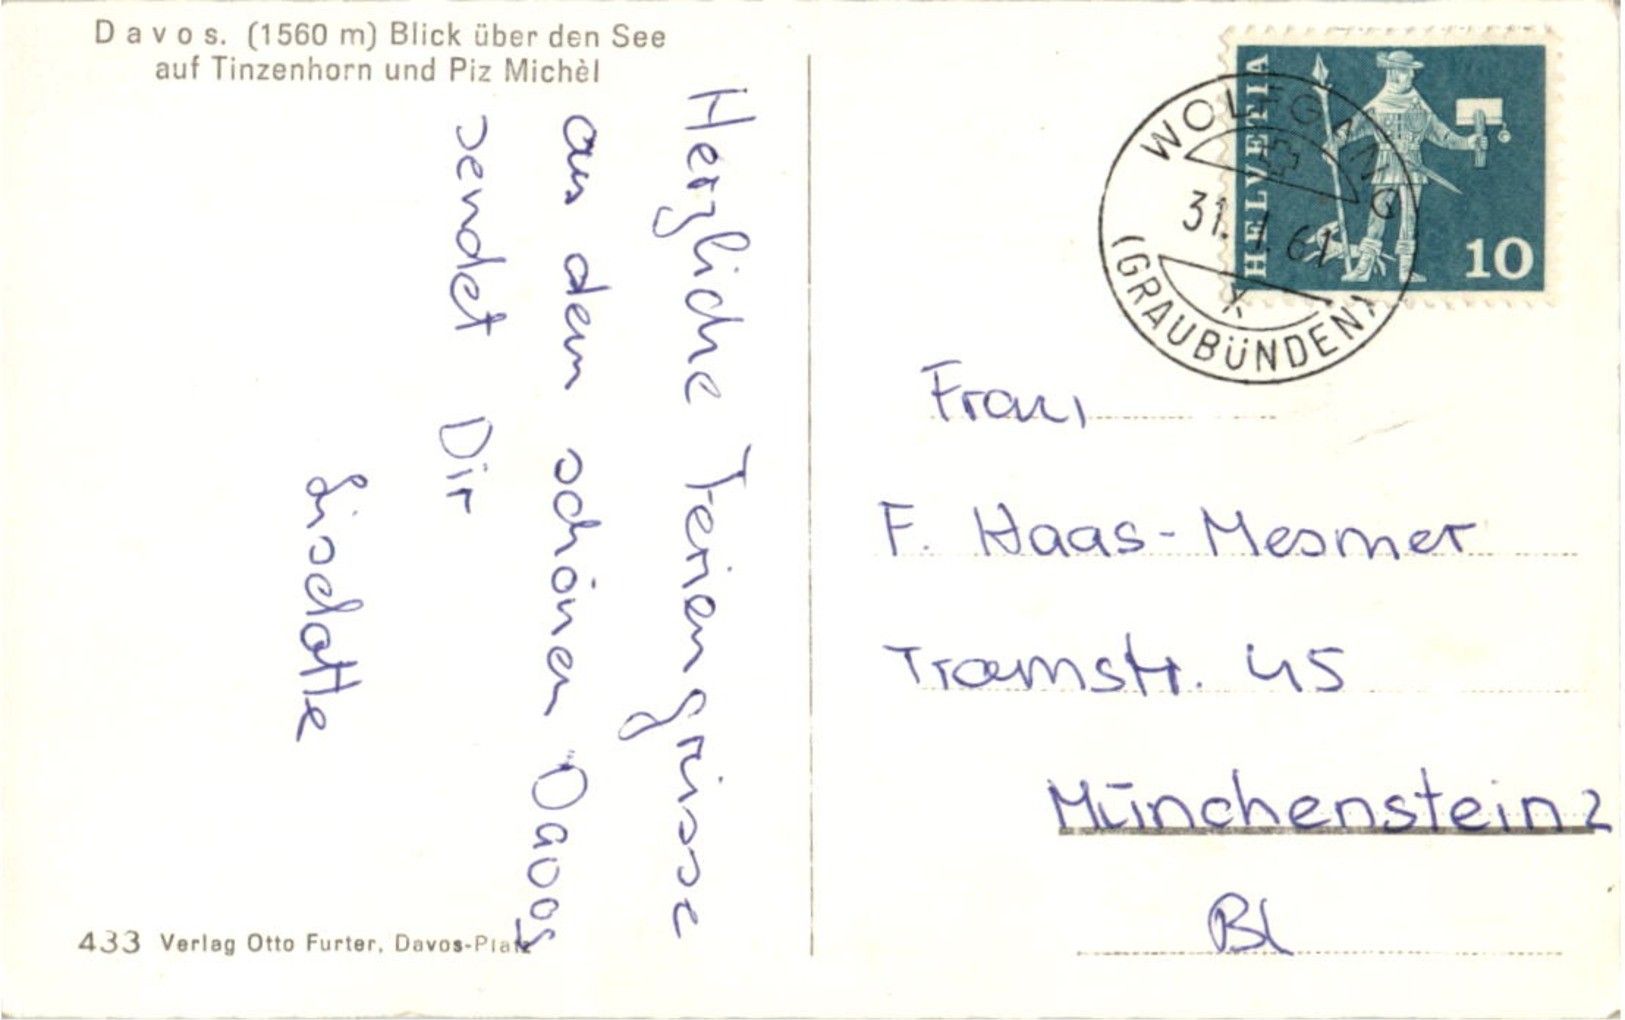 Davos. (1560 m) Blick über den See
auf Tinzenhorn und Piz Michèl
Herzliche Feriengrüsse
aus dem schönen Davos
sendet Dir
Liselotte
433 Verlag Otto Furter, Davos-Platz
HELVETIA
10
WOLFGANG
31. 1. 61
(GRAUBÜNDEN)
Frau
F. Haas-Mesmer
Tramstr. 45
Münchenstein 2
BL